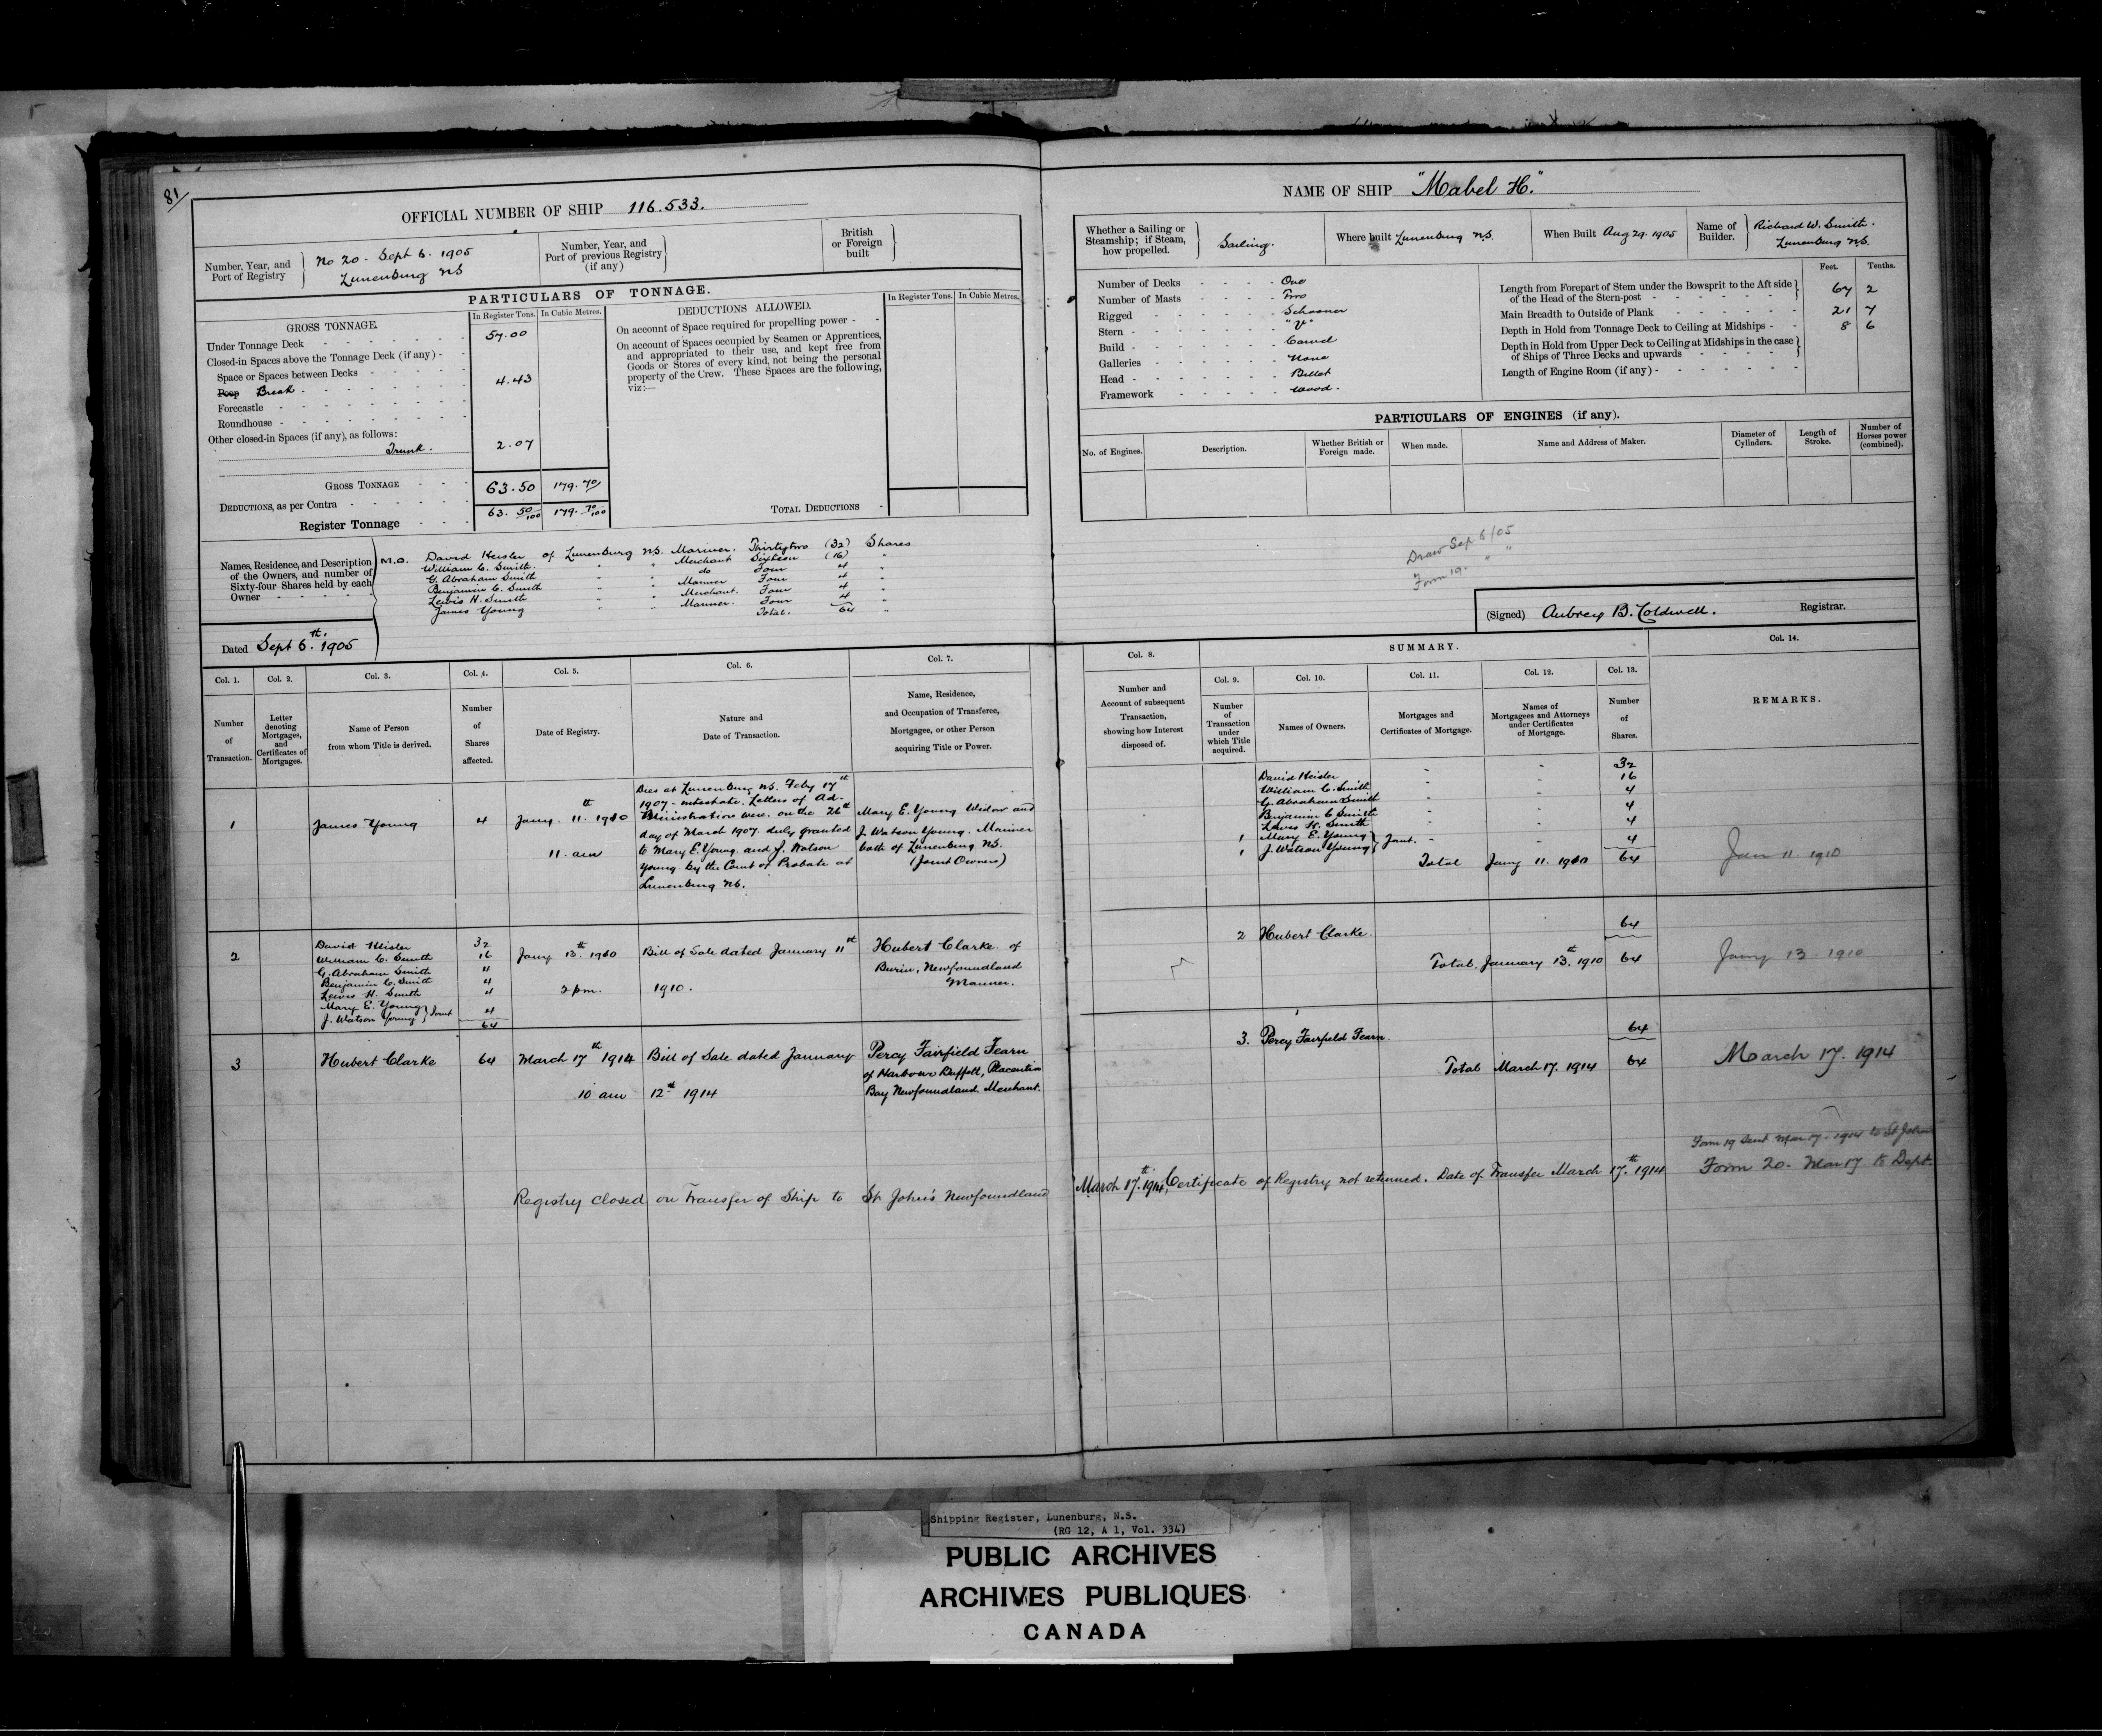 81
OFFICIAL NUMBER OF SHIP 116.533.
Number, Year, and Port of Registry
No 20 - Sept 6. 1905
Lunenburg NS
Number, Year, and Port of previous Registry (if any)
British or Foreign built
PARTICULARS OF TONNAGE.
GROSS TONNAGE.
In Register Tons. In Cubic Metres.
DEDUCTIONS ALLOWED.
In Register Tons. In Cubic Metres.
Under Tonnage Deck 57.00
Closed-in Spaces above the Tonnage Deck (if any)
Space or Spaces between Decks
Poop Break 4.43
Forecastle
Roundhouse
Other closed-in Spaces (if any), as follows:
Trunk. 2.07
GROSS TONNAGE 63.50 179.70
DEDUCTIONS, as per Contra
Register Tonnage 63. 50/100 179. 70/100
On account of Space required for propelling power
On account of Spaces occupied by Seamen or Apprentices,
and appropriated to their use, and kept free from
Goods or Stores of every kind, not being the personal
property of the Crew. These Spaces are the following,
viz:—
TOTAL DEDUCTIONS
Names, Residence, and Description
of the Owners, and number of
Sixty-four Shares held by each
Owner
M.O. David Heisler of Lunenburg N.S. Mariner. Thirtytwo (32) Shares
William C. Smith " " Merchant Sixteen (16) "
G. Abraham Smith " " do Four 4 "
Benjamin C. Smith " " Mariner Four 4 "
Lewis H. Smith " " Merchant. Four 4 "
James Young " " Mariner. Four 4 "
Total. 64 "
Dated Sept 6th. 1905
Col. 1. Col. 2. Col. 3. Col. 4. Col. 5. Col. 6. Col. 7.
Number of Transaction.
Letter denoting Mortgages, and Certificates of Mortgages.
Name of Person from whom Title is derived.
Number of Shares affected.
Date of Registry.
Nature and Date of Transaction.
Name, Residence, and Occupation of Transferee, Mortgagee, or other Person acquiring Title or Power.
1
James Young
4
Jany. 11th 1910
11. am
Dies at Lunenburg N.S. Feby 17th
1907 - intestate. Letters of Ad-
ministration were, on the 26th
day of March 1907. duly granted
to Mary E. Young. and J. Watson
Young by the Court of Probate at
Lunenburg NS.
Mary E. Young Widow and
J. Watson Young. Mariner
both of Lunenburg NS.
(Joint Owners)
2
David Heisler 32
William C. Smith 16
G. Abraham Smith 4
Benjamin C. Smith 4
Lewis H. Smith 4
Mary E. Young
J. Watson Young } Joint 4
64
Jany 13th. 1910
2 pm.
Bill of Sale dated January 11th
1910.
Hubert Clarke of
Burin, Newfoundland
Mariner.
3
Hubert Clarke
64
March 17th 1914
10 am
Bill of Sale dated January
12th 1914
Percy Fairfield Fearn
of Harbour Buffett, Placentia
Bay Newfoundland. Merchant.
Registry closed on Transfer of Ship to St John's Newfoundland
NAME OF SHIP "Mabel H."
Whether a Sailing or Steamship; if Steam, how propelled.
Sailing.
Where built Lunenburg N.S.
When Built Aug 29. 1905
Name of Builder.
Richard W. Smith.
Lunenburg N.S.
Number of Decks One
Number of Masts Two
Rigged Schooner
Stern "V"
Build Carvel
Galleries None
Head Billet
Framework Wood.
Feet. Tenths.
Length from Forepart of Stem under the Bowsprit to the Aft side
of the Head of the Stern-post 67 2
Main Breadth to Outside of Plank 21 7
Depth in Hold from Tonnage Deck to Ceiling at Midships 8 6
Depth in Hold from Upper Deck to Ceiling at Midships in the case
of Ships of Three Decks and upwards
Length of Engine Room (if any)
PARTICULARS OF ENGINES (if any).
No. of Engines.
Description.
Whether British or Foreign made.
When made.
Name and Address of Maker.
Diameter of Cylinders.
Length of Stroke.
Number of Horses power (combined).
Draw Sep 6/05
Form 19. " "
(Signed) Aubrey B. Coldwell. Registrar.
Col. 8.
SUMMARY.
Col. 14.
Col. 9. Col. 10. Col. 11. Col. 12. Col. 13.
Number and Account of subsequent Transaction, showing how Interest disposed of.
Number of Transaction under which Title acquired.
Names of Owners.
Mortgages and Certificates of Mortgage.
Names of Mortgagees and Attorneys under Certificates of Mortgage.
Number of Shares.
REMARKS.
David Heisler - - 32
William C. Smith - - 16
G. Abraham Smith - - 4
Benjamin C Smith 4
Lewis H. Smith 4
1 Mary E. Young
1 J. Watson Young } Joint. - - 4
Total Jany 11. 1910 64
Jan 11 1910
2 Hubert Clarke. 64
Total January 13th. 1910 64
Jany 13 - 1910
3. Percy Fairfield Fearn. 64
Total March 17. 1914 64
March 17. 1914
Form 19 Sent Mar 17. 1914 to St Johns
Form 20. Mar 17 to Dept.
March 17th. 1914, Certificate of Registry not returned. Date of Transfer March 17.th 1914
Shipping Register, Lunenburg, N.S.
(RG 12, A 1, Vol. 334)
PUBLIC ARCHIVES
ARCHIVES PUBLIQUES
CANADA